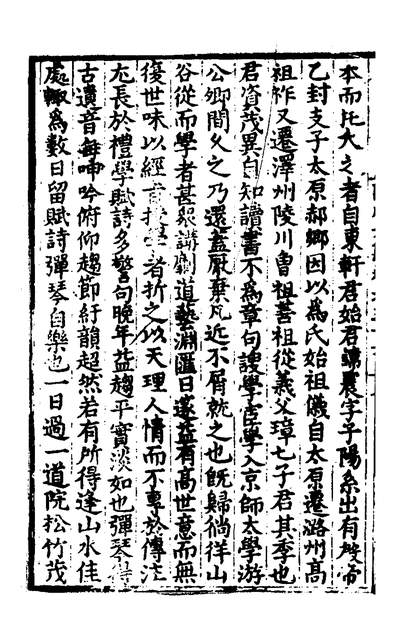 本而比大之者自東軒君始君諱震字子陽系出有殷帝
乙封支子太原郝鄉因以爲氏始祖儀自太原遷潞州高
祖祚又遷澤州陵川曾祖善祖從義父璋七子君其季也
君資茂異自知讀書不爲章句謏學冠學入京師太學游
公卿間久之乃還盖厭棄凡近不屑就之也旣歸徜徉山
谷從而學者甚衆講劘道藝淵匯日邃益有高世意而無
復世味以經授學者折之以天理人情而不專於傳注
尢長於禮學賦詩多警句晚年益趨平實淡如也彈琴得
古遺音每呻吟俯仰趨節紆韻超然若有所得逢山水佳
處輙爲數日留賦詩彈琴自樂也一日過一道院松竹茂